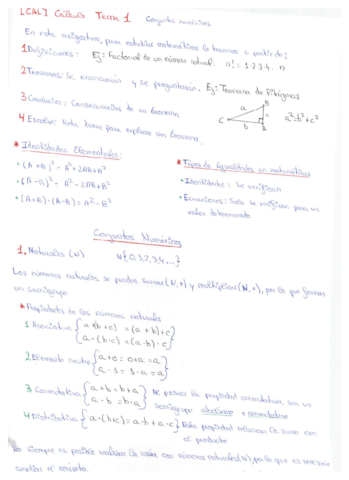 [CAL] Cálculo Tema 1 Conjuntos numéricos
En esta asignatura, para estudiar matemáticas lo haremos a partir de:
1 Definiciones: Ej: Factorial de un número natural: n! = 1·2·3·4...n
2 Teoremas: Se enuncian y se preguntarán. Ej: Teorema de Pitágoras
a
B
c
C
b
A
a²=b²+c²
3 Corolario: Consecuencias de un teorema
4 Escolio: Nota breve para explicar un teorema.
* Identidades Elementales:
• (A+B)² = A²+2AB+B²
• (A-B)² = A²-2AB+B²
• (A+B)·(A-B) = A²-B²
* Tipos de igualdades en matemáticas
• Identidades: Se verifican
• Ecuaciones: Solo se verifican para un
valor determinado
Conjuntos Numéricos
1. Naturales (N) N{0,1,2,3,4...}
Los números naturales se pueden sumar (N,+) y multiplicar (N,·), por lo que forman
un semigrupo
* Propiedades de los números naturales
1 Asociativa { a+(b+c) = (a+b)+c }
{ a·(b·c) = (a·b)·c }
2 Elemento neutro { a+0 = 0+a = a }
{ a·1 = 1·a = a }
3 Conmutativa { a+b = b+a } poseen la propiedad conmutativa, son un
{ a·b = b·a } semigrupo abeliano o conmutativo
4 Distributiva { a·(b+c) = a·b+a·c } Esta propiedad relaciona la suma con
el producto
No siempre es posible realizar la resta con números naturales (N), por lo que es necesario
ampliar el concepto.